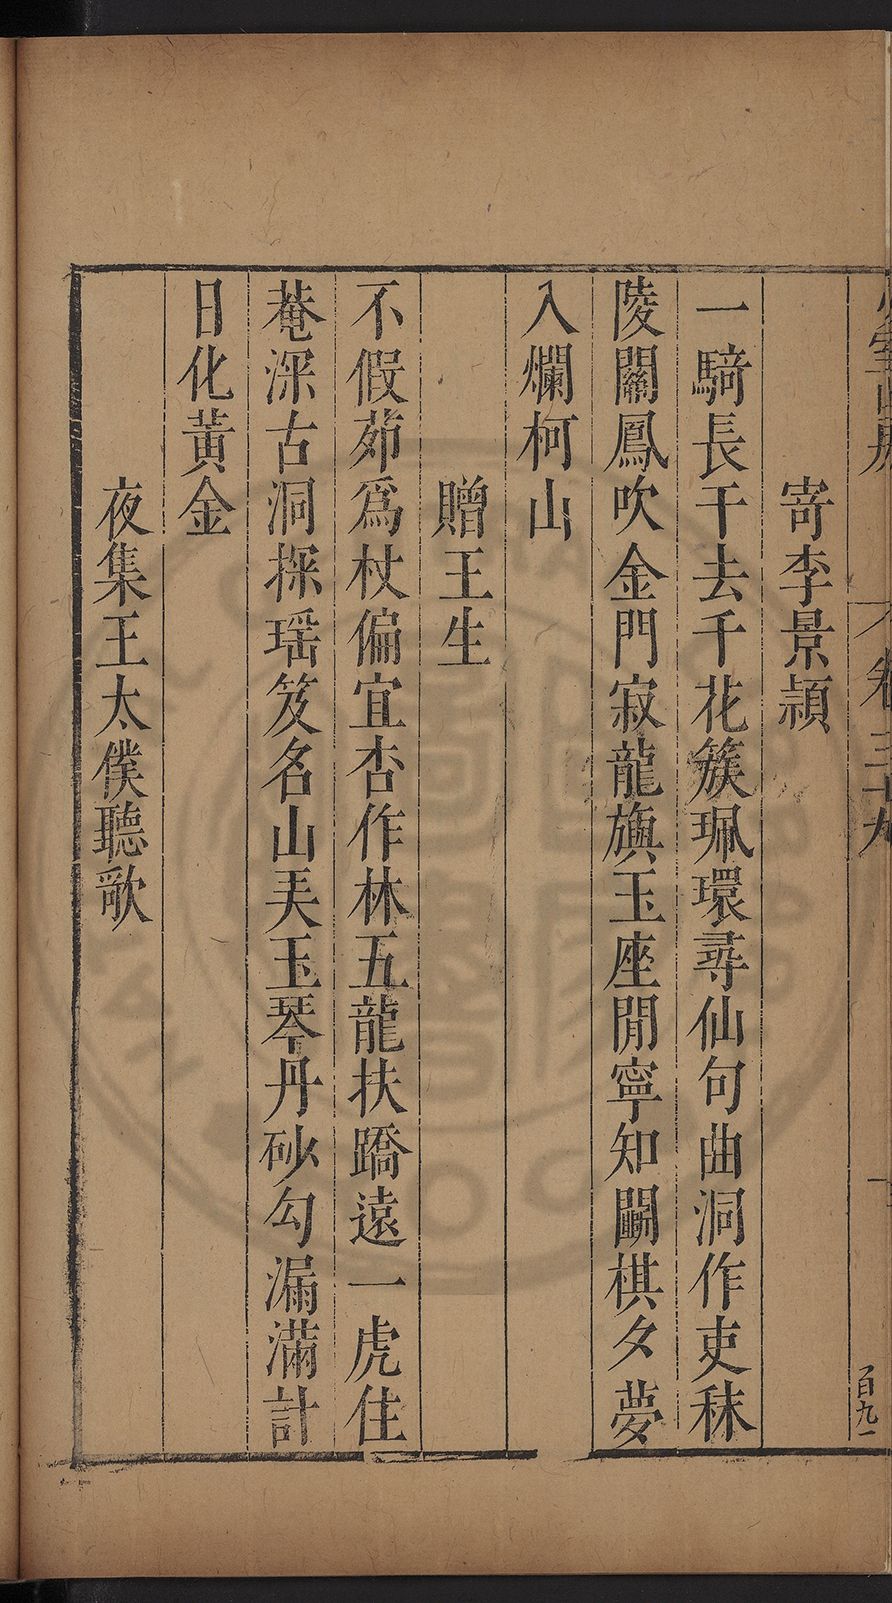 寄李景頴
一騎長干去千花簇珮環尋仙句曲洞作吏秣
陵關鳳吹金門寂龍旟玉座閒寧知鬭棋夕夢
入爛柯山
贈王生
不假茆爲杖偏宜杏作林五龍扶蹻遠一虎住
菴深古洞探瑶笈名山美玉琴丹砂勾漏滿計
日化黃金
夜集王太僕聽歌
卷三十九
百九一